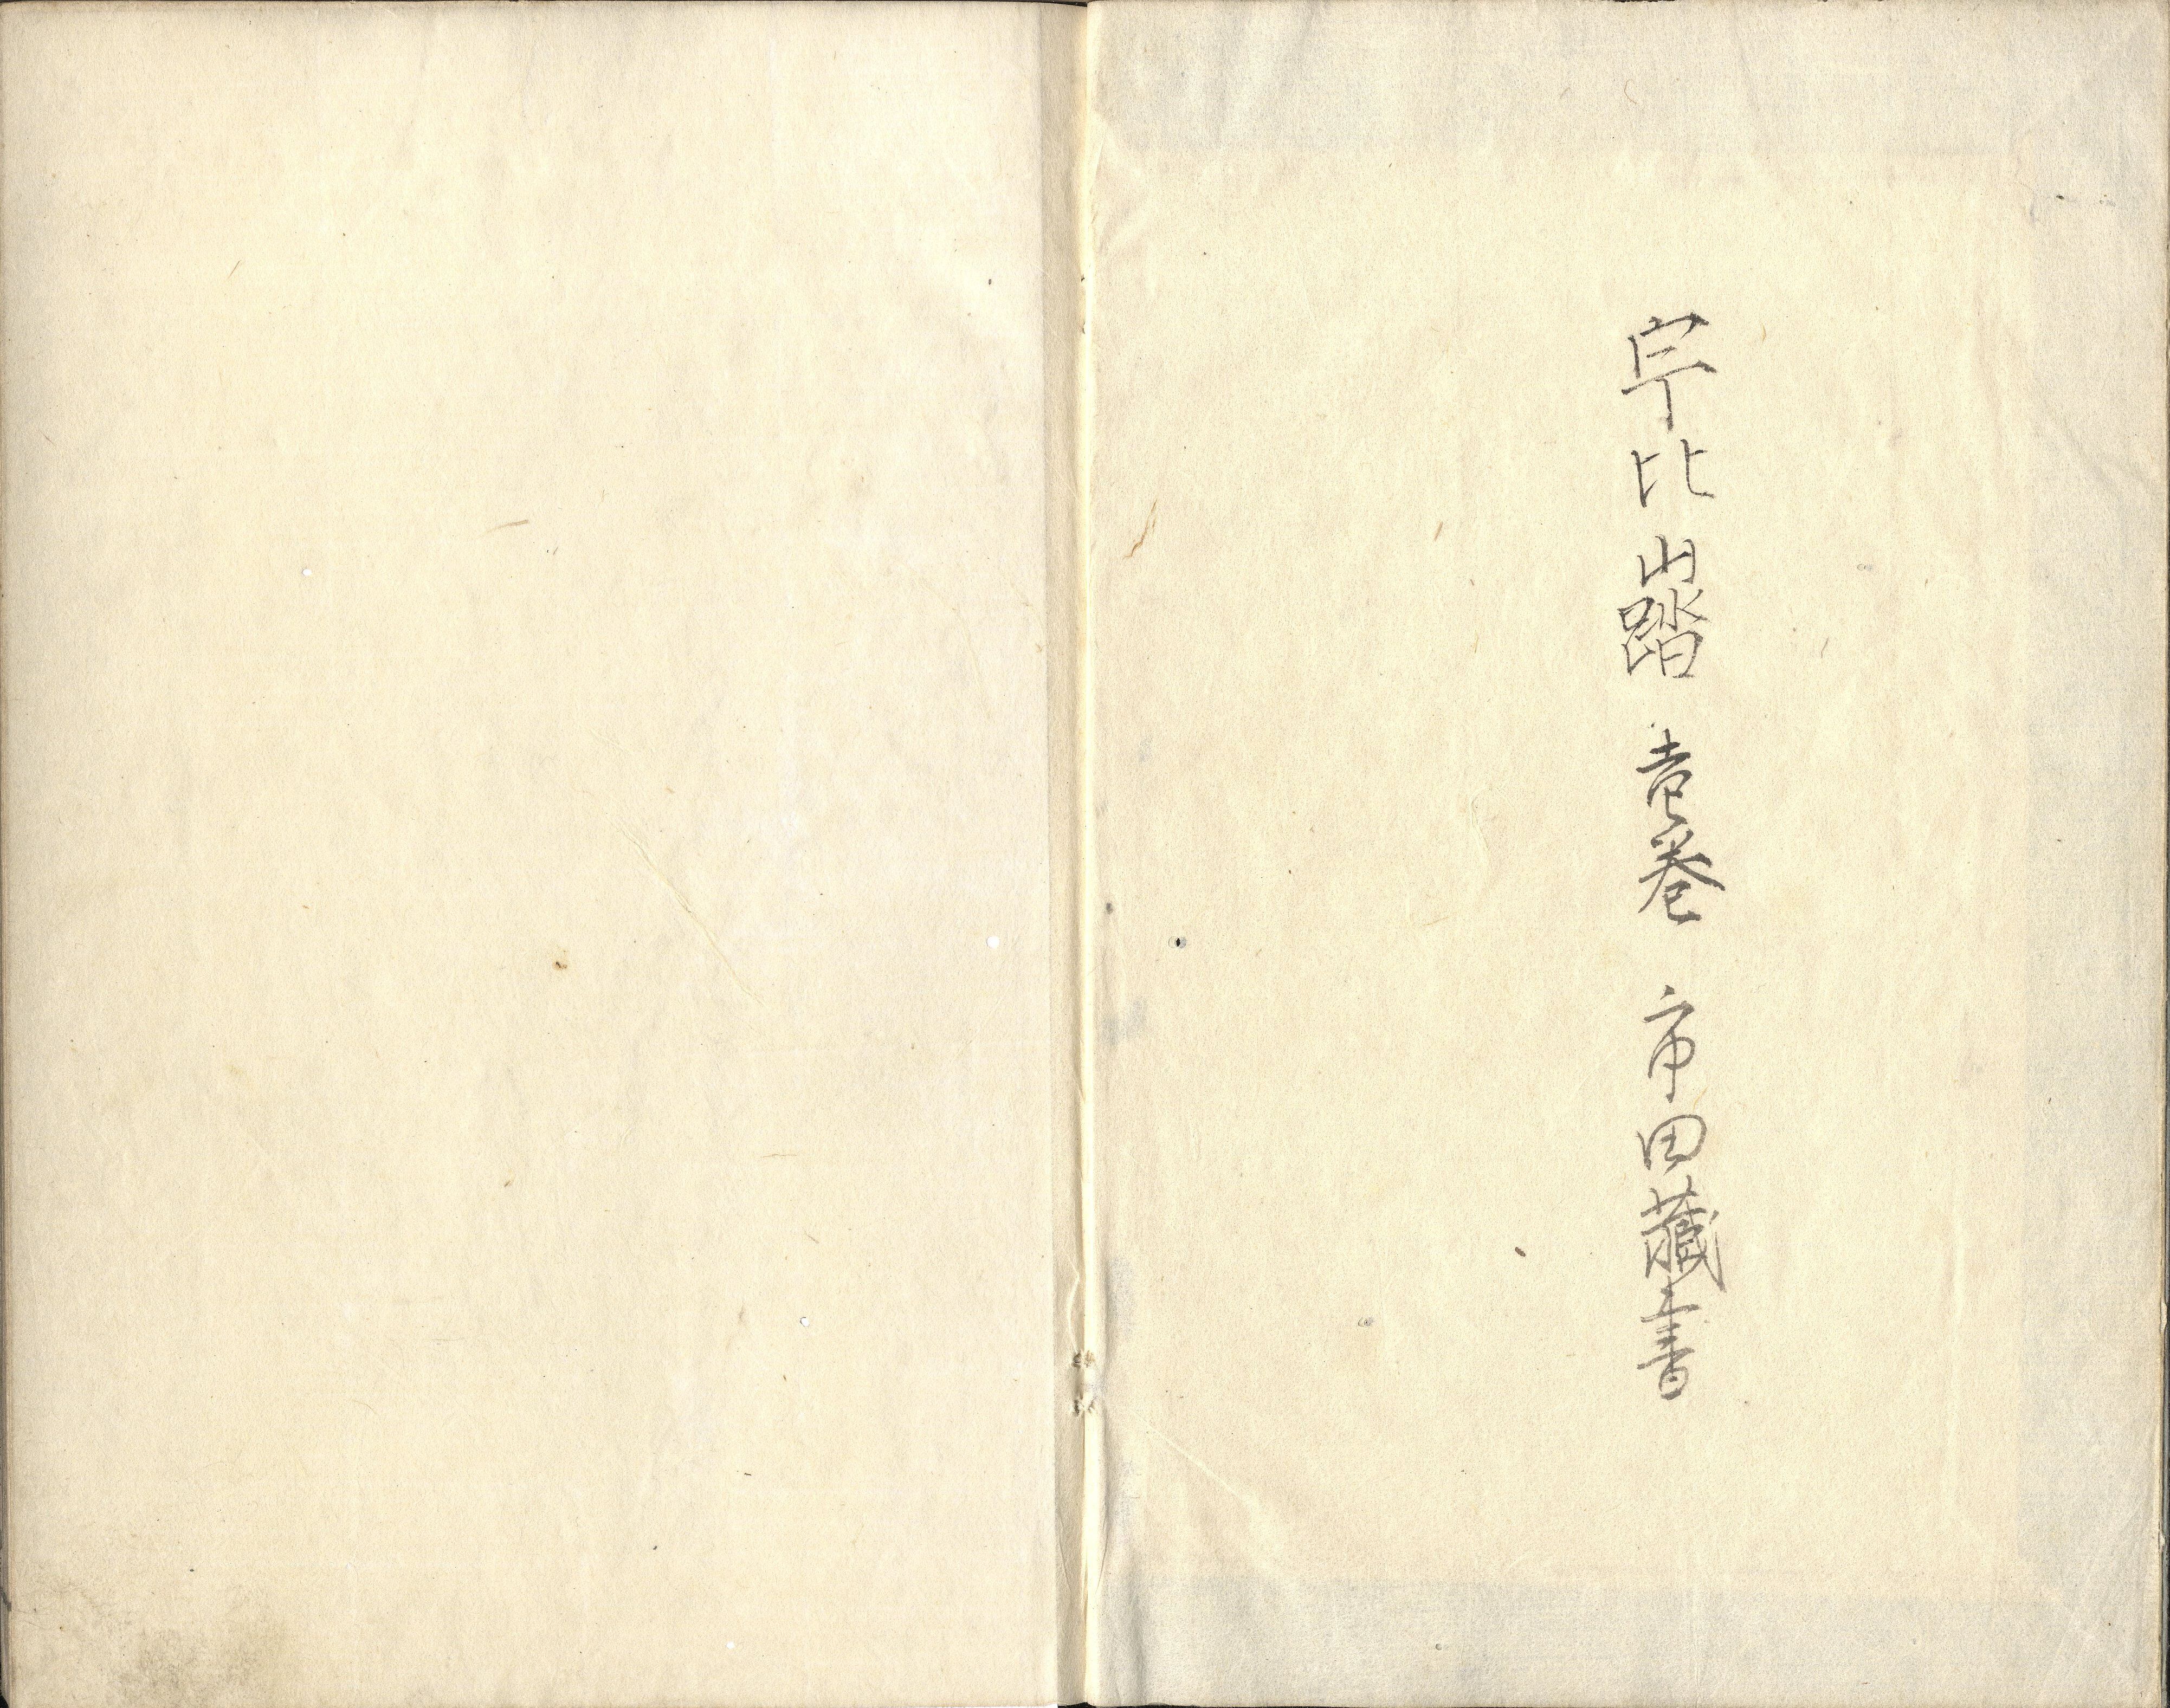 宇比山踏 壱巻 市田蔵書